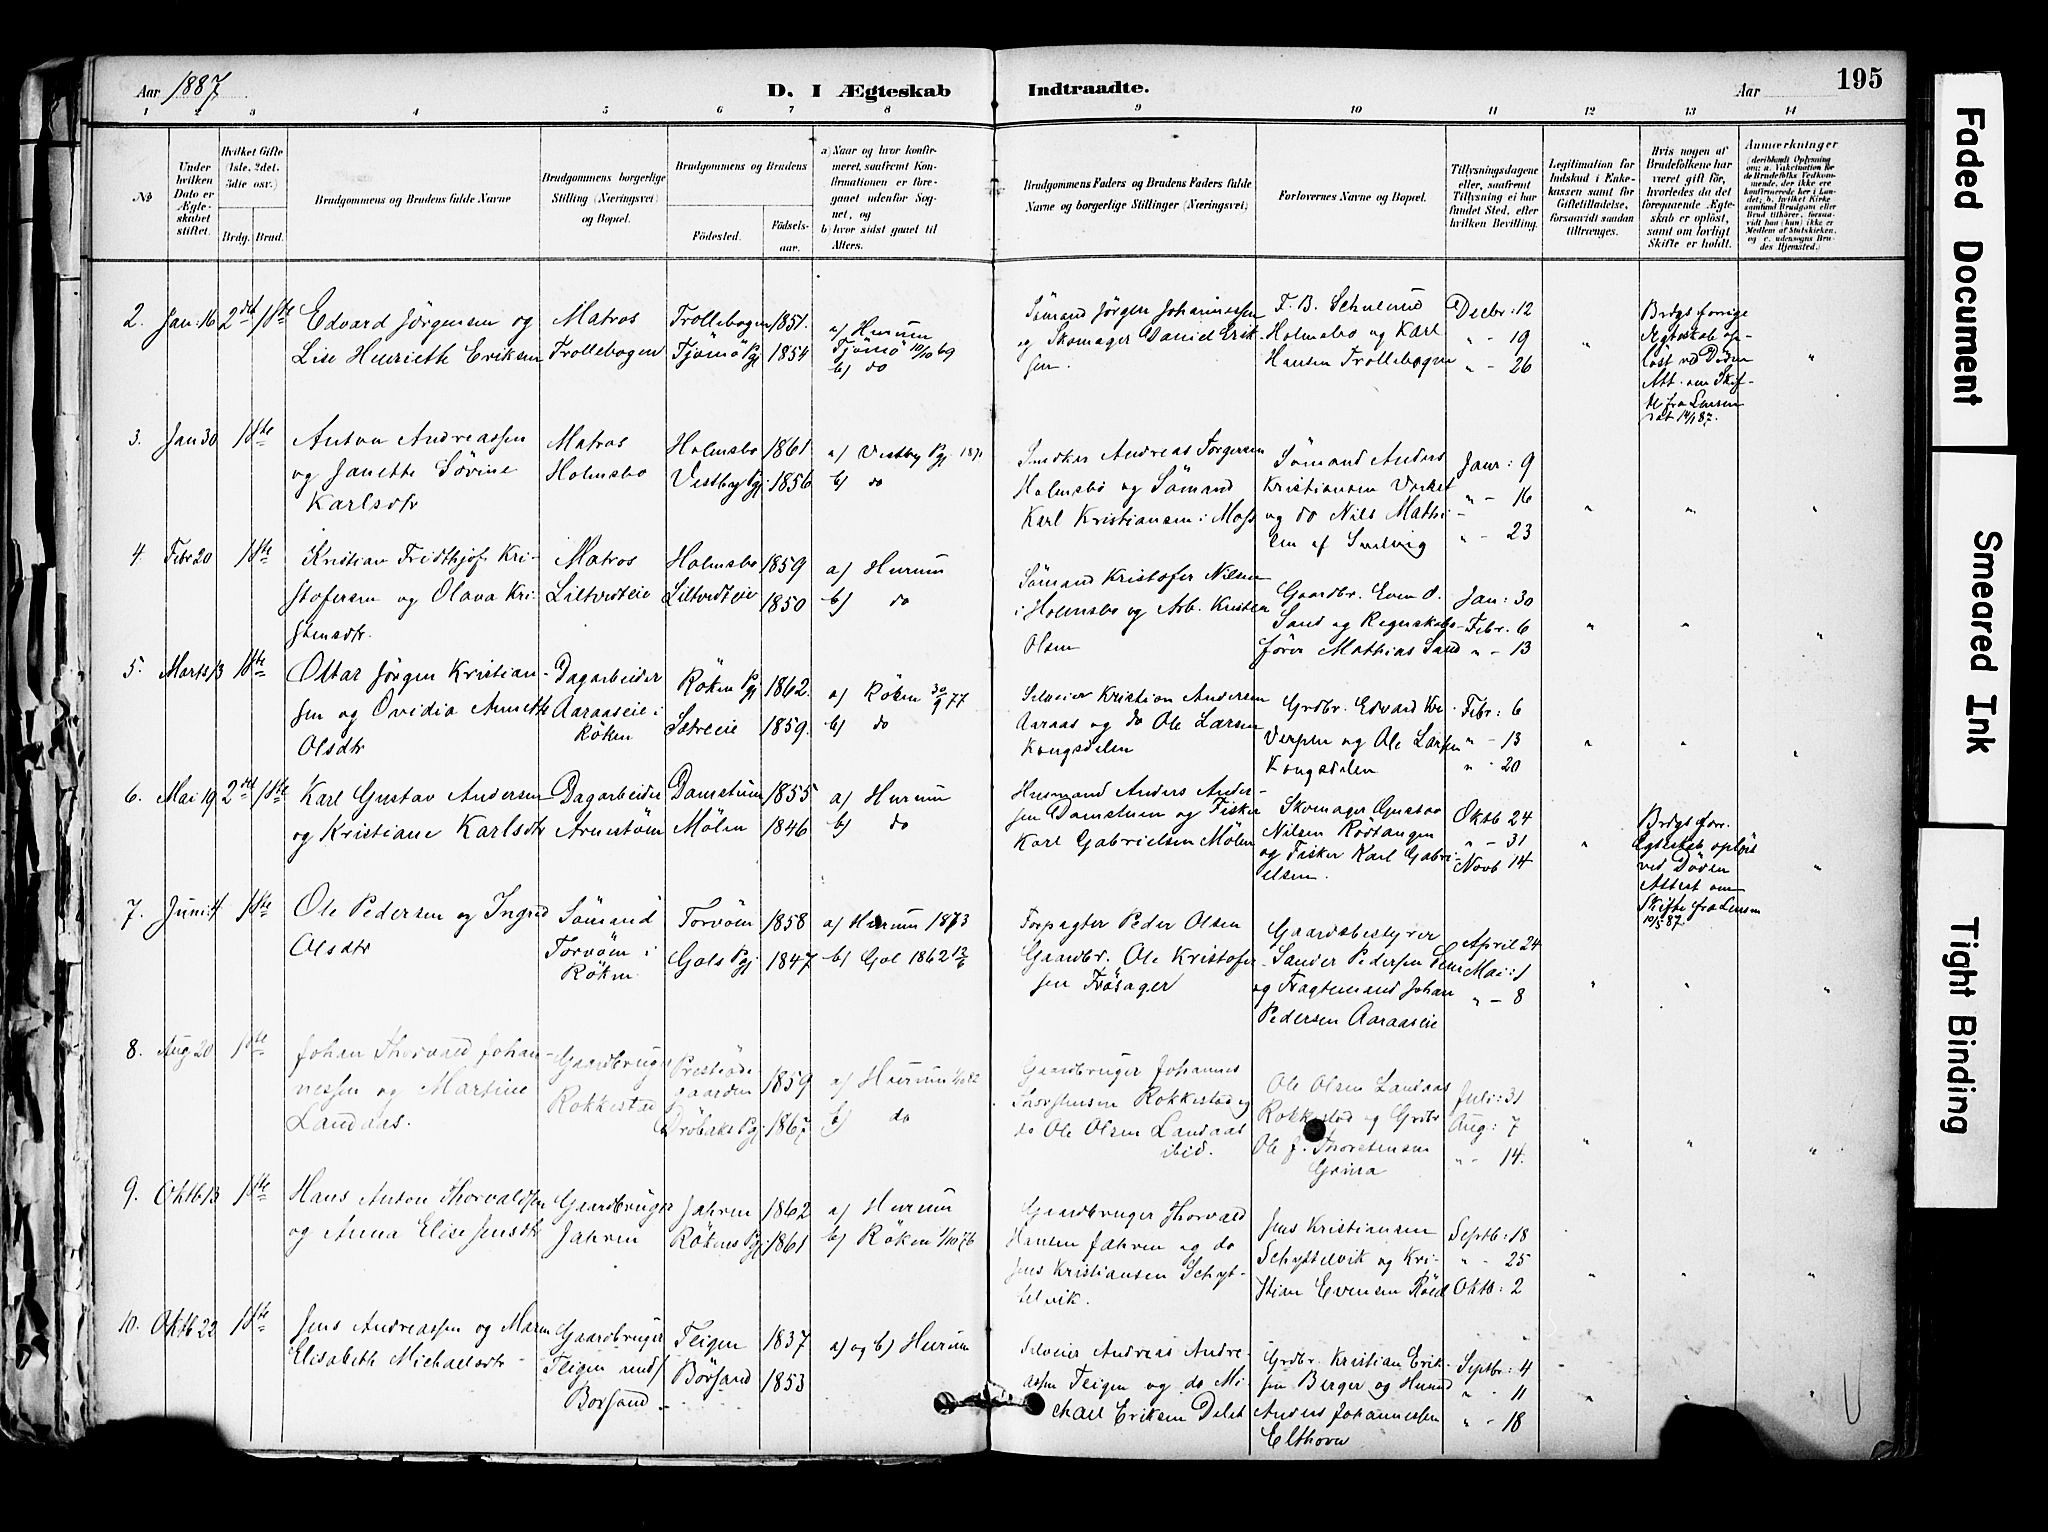 Aar 1887
D. I Ægteskab Indtraadte.
Aar
195
1 2 3 4 5 6 7 8 9 10 11 12 13 14
No
Under hvilken Dato er Ægteskabet stiftet.
Hvilket Gifte (1ste, 2det, 3die osv.)
Brdg. Brud.
Brudgommens og Brudens fulde Navne
Brudgommens borgerlige Stilling (Næringsvei) og Bopæl.
Brudgommens og Brudens
Fødested.
Fødselsaar.
a) Naar og hvor konfirmeret, saafremt Konfirmationen er foregaaet udenfor Sognet, og
b) hvor sidst gaaet til Alters.
Brudgommens Faders og Brudens Faders fulde Navne og borgerlige Stillinger (Næringsvei)
Forlovernes Navne og Bopæl.
Tillysningsdagene eller, saafremt Tillysning ei har fundet Sted, efter hvilken Bevilling.
Legitimation for Indskud i Enkekassen samt for Giftetilladelse, forsaavidt saadan tiltrænges.
Hvis nogen af Brudefolkene har været gift før, hvorledes da det foregaaende Ægteskab er opløst, samt om lovligt Skifte er holdt.
Anmærkninger
(deriblandt Oplysning om: a. Vakcination for de Brudefolks Vedkommende, der ikke ere konfirmerede her i Landet; b. hvilket Kirkesamfund Brudgom eller Brud tilhører, forsaavidt han (hun) ikke er Medlem af Statskirken, og c. udensogns Brudes Hjemsted.)
2. Jan: 16 2det 1ste
Edvard Jörgensen og
Lise Henrieth Eriksen
Matros
Trollebogen
Trollebogen 1851.
Tjömö Pgj 1854
a) Hurum
Tjömö 10/10 69
b) do
Sömand Jörgen Johannessen
og Skomager Daniel Erik
sen.
F. B. Schnerud
Holmsbo og Karl
Hansen Trollebogen
Decbr: 12
" - 19
" - 26
"
Brdgs forrige
Ægteskab op-
löst ved Döden
Att. om Skif-
te fra Lensm
dat 14/1 87.
"
3. Jan 30 1ste
Anton Andreassen
og Janette Sövine
Karlsdtr
Matros
Holmsbo
Holmsbo 1861
Vestby Pgj. 1856
a) Vestby Pgj. 1871
b) do
Andreas Torgersen
Holmsbö og Sömand
Karl Kristiansen i Moss
Sömand Anders
Kristiansen
og do Nils Mathi-
sen af
Janr: 9
" - 16
" - 23
" " "
4. Febr 20 1ste
Kristian Fridthjof Kri-
stofersen og Olava Kri-
stensdtr.
Matros
Liltvedteie
Holmsbo 1859
Liltvedteie 1850
a) Hurum
b) do
Sömand Kristofer Nilsen
i Holmsbo og Arb. Kristen
Olsen
Gaardbr. Even O.
Sand og Regnskabs-
förer Mathias Sand
Jan: 30
Febr. 6
" - 13
" " "
5. Marts 13 1ste
Ottar Jörgen Kristian-
sen og Ovidia Annette
Olsdtr
Dagarbeider
Aaraaseie i
Röken
Röken Pgj 1862.
Sætreeie 1859.
a) Röken 30/9 77
b) do
Selveier Kristian Andersen
Aaraas og do Ole Larsen
Kongsdelen
Grdbr. Edvard
Verpen og Ole Larsen
Kongsdelen
Febr: 6
" - 13
" - 20
" " "
6. Mai 19 2det 1ste
Karl Gustav Andersen
og Kristiane Karlsdtr
Dagarbeider
Arnestöm
Damstuen 1855
Mölen 1846
a) Hurum
b) do
Husmand Anders Ander-
sen Damstuen og Fisker
Karl Gabrielsen Mölen
Skomager Gustav
Nilsen Rödtangen
og Fisker Karl Gabri-
elsen.
Oktb 24
" - 31
Novb 14
"
Brdgs forr.
Ægteskab oplöst
ved Döden
Attest om
Skifte fra Lensm
10/5 87.
"
7. Juni 4 1ste
Ole Pedersen og Ingrid
Olsdtr
Sömand
Torvöen i
Röken
Torvöen 1858
Gols Pgj 1847
a) Hurum 1873
b) Gol 1862 12/6
Forpagter Peder Olsen
Gaardbr. Ole Kristofer
sen Frösager
Gaardsbestyrer
Sander Pedersen
og Fragtemand Johan
Pedersen Aaraaseie
April 24
Mai: 1
" - 8
" " "
8. Aug 20 1ste
Johan Thorvald Johan-
nessen og Martine
Landaas.
Gaardbruger
Rokkestad
Prestegaarden 1859
Dröbaks Pgj. 1867
a) Hurum 1/10 82
b) do
Gaardbruger Johannes
Rokkestad og
do Ole Olsen Landaas
ibid.
Ole Olsen Landaas
Rokkestad og Grdbr
Ole J. Thorstensen
Grina
Juli: 31
Aug: 7
" - 14.
" " "
9. Oktb 13 1ste
Hans Anton Thorvaldsen
og Anna Elise Jensdtr
Gaardbruger
Jahren
Jahren 1862
Rökens Pgj 1861
a) Hurum
b) Röken 1/10 76
Gaardbruger Thorvald
Hansen Jahren og do
Jens Kristiansen Schyt-
telvik.
Jens Kristiansen
Schyttelvik og Kri-
stian Evensen Röed
Septb: 18
" - 25
Oktb: 2
" " "
10. Oktb 22 1ste
Jens Andreassen og Maren
Elisabeth Michaelsdtr
Gaardbruger
Teigen und/
Börsand
Teigen 1837
Börsand 1853
a) og b) Hurum
Selveier Andreas Andre-
assen Teigen og do Mi-
chael Eriksen
Grdbr. Kristian Erik-
sen Berger og Husmd
Anders Johannessen
Elthoven
Septbr: 4
" - 11
" - 18
" "
Faded Document
Smeared Ink
Tight Binding